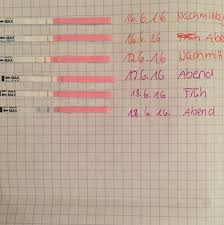 MAX 16.6.16 Nachmitta
MAX 16.6.16 Früh Abe
MAX 17.6.16 Nachmitt
MAX 17.6.16 Abend
MAX 18.6.16 Früh
MAX 18.6.16. Abend